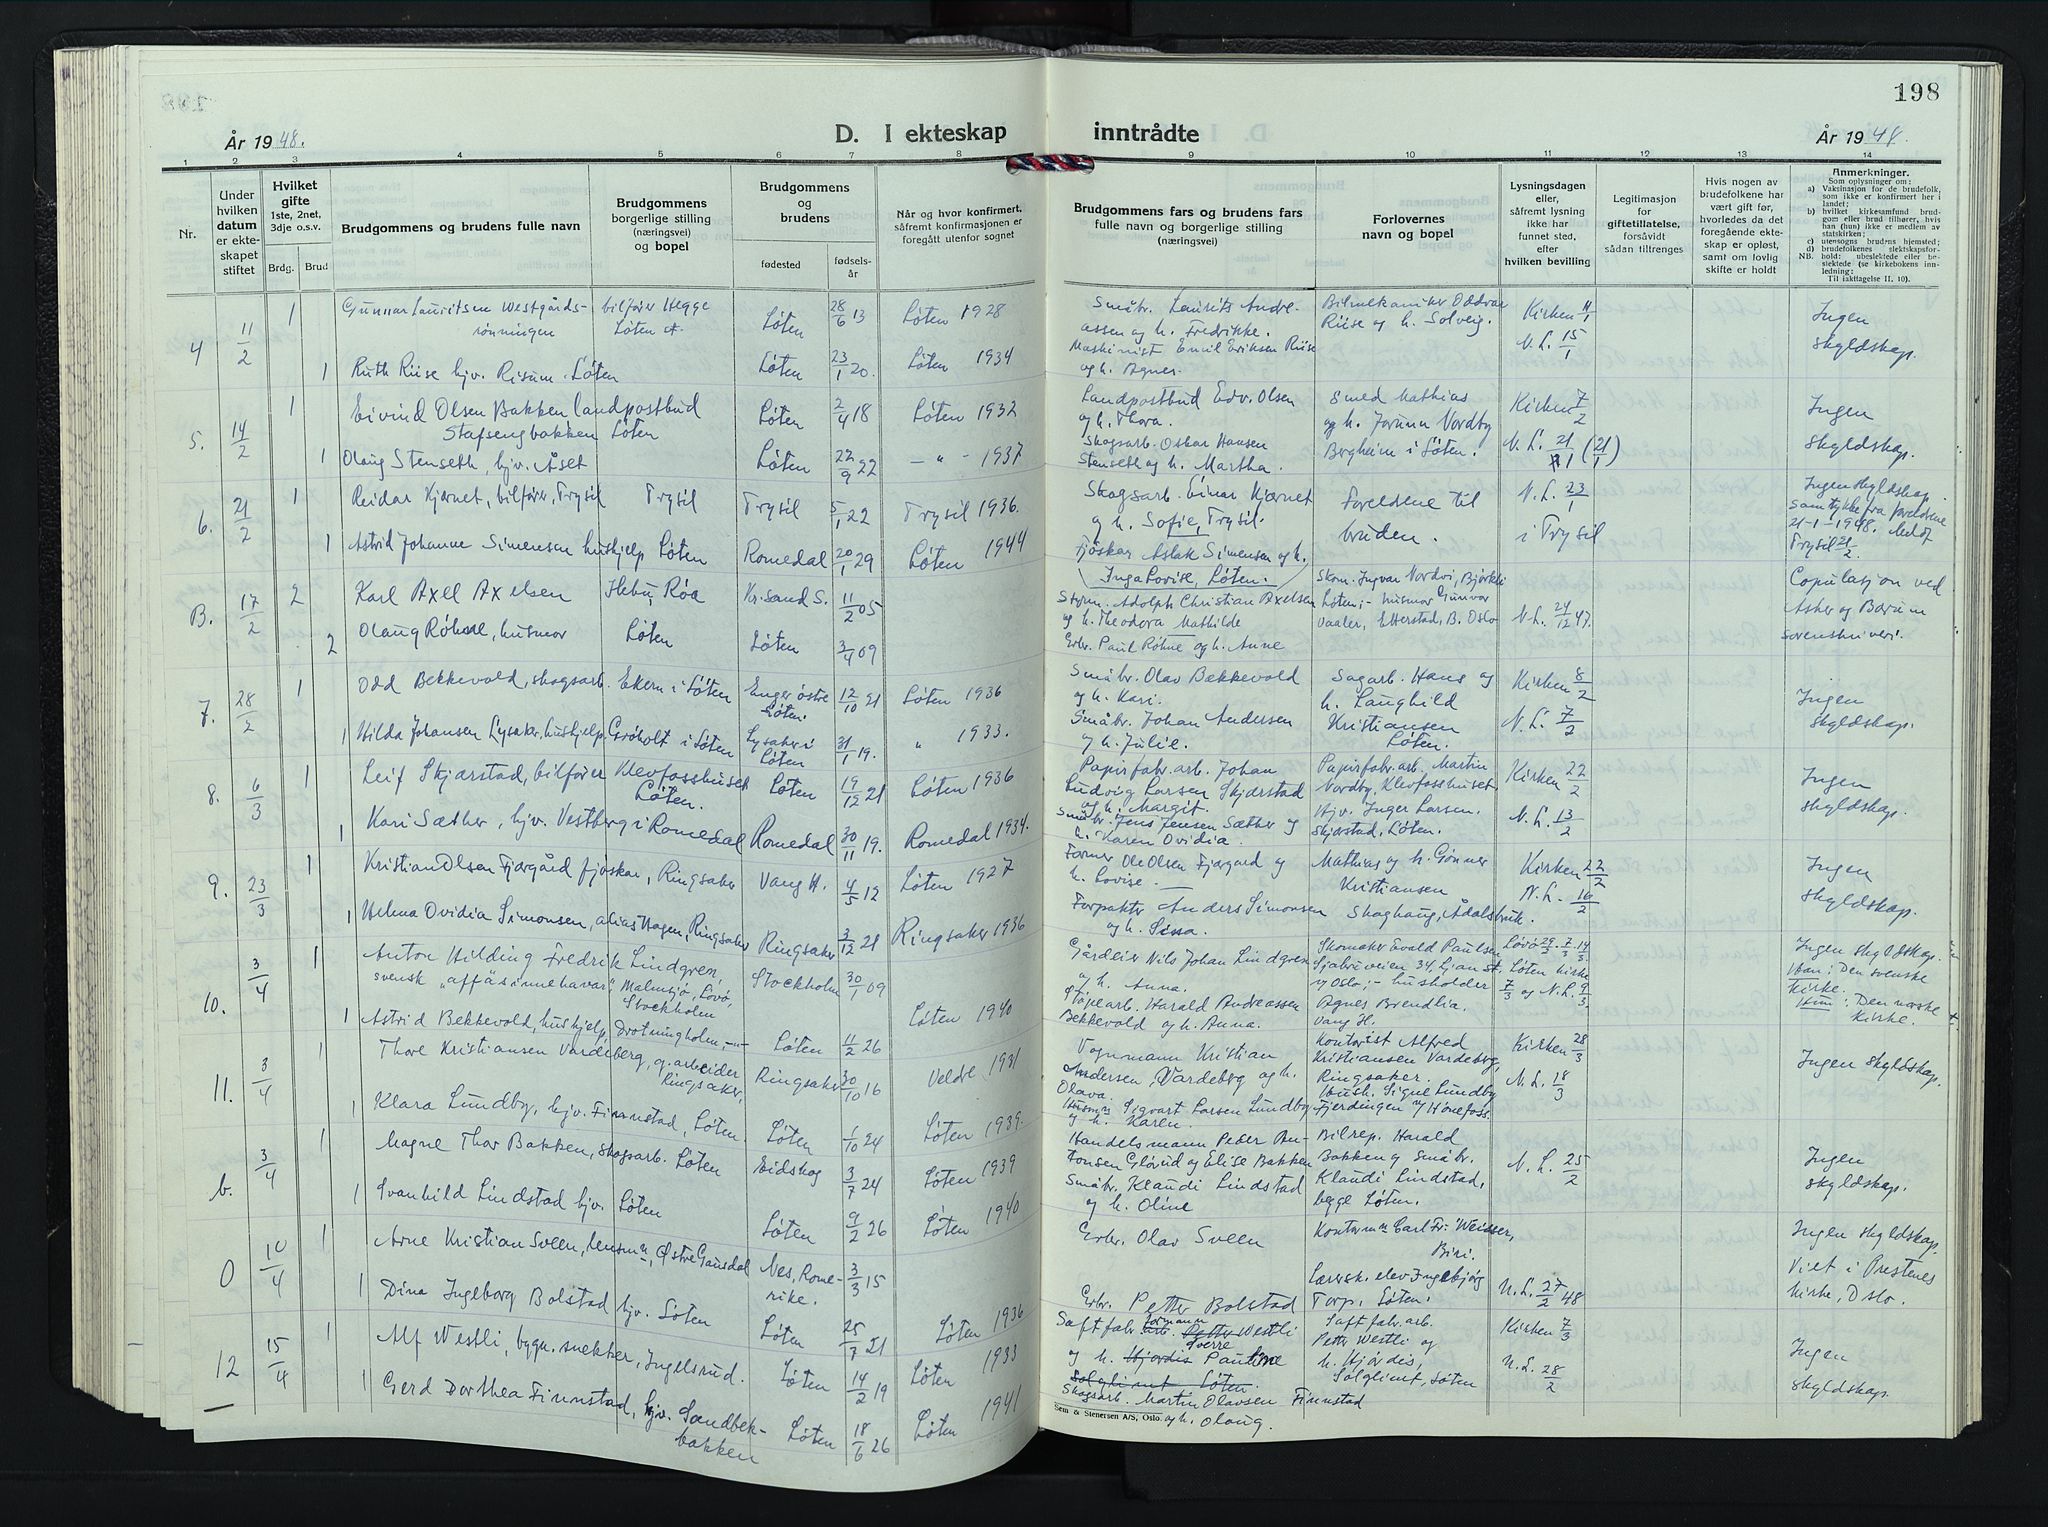 198
År 1948.
D. I ekteskap
inntrådte
År 1948.
1 2 3 4 5 6 7 8 9 10 11 12 13 14
Nr.
Under hvilken datum er ekteskapet stiftet
Hvilket gifte 1ste, 2net, 3dje o.s.v.
Brdg. Brud
Brudgommens og brudens fulle navn
Brudgommens borgerlige stilling (næringsvei) og bopel
Brudgommens og brudens
fødested fødselsår
Når og hvor konfirmert, såfremt konfirmasjonen er foregått utenfor sognet
Brudgommens fars og brudens fars fulle navn og borgerlige stilling (næringsvei)
Forlovernes navn og bopel
Lysningsdagen eller, såfremt lysning ikke har funnet sted, efter hvilken bevilling
Legitimasjon for giftetillatelse, forsåvidt sådan tiltrenges
Hvis nogen av brudefolkene har vært gift før, hvorledes da det foregående ekteskap er opløst, samt om lovlig skifte er holdt
Anmerkninger.
Som oplysninger om:
a) Vaksinasjon for de brudefolk, som ikke er konfirmert her i landet;
b) hvilket kirkesamfund brudgom eller brud tilhører, hvis han (hun) ikke er medlem av statskirken;
c) utensogns brudens hjemsted;
d) brudefolkenes slektskapsforhold: ubeslektede eller beslektede (se kirkebokens innledning:
NB. Til iakttagelse II, 10).
4 11/2 1 Gunnar Lauritsen Westgårdsrønningen bilfører Hegge Løten Løten 28/6 13 Løten 1928
Småbr. Laurits Andreassen og h. Fredrikke. Bilmekaniker Oddvar Riise og h. Solveig. Kirken 11/1 N.L. 15/1 Ingen skyldskap.
1 Ruth Riise hjv. Risum Løten Løten 23/1 20. Løten 1934
Maskinist Emil Eriksen Riise og h. Agnes.
5. 14/2 1 Eivind Olsen Bakken landpostbud Stafsengbakken Løten Løten 2/4 18 Løten 1932
Landpostbud Edv. Olsen og h. Thora. Smed Mathias og h. Jorunn Nordby Bergheim i Løten. Kirken 7/2 N.L. 21/1 (21/1) Ingen skyldskap.
1 Olaug Stenseth, hjv. Åset Løten 22/9 22 — " - 1937
Skogsarb. Oskar Hansen Stenseth og h. Martha.
6. 21/2 1 Reidar Kjernet, bilfører, Trysil Trysil Trysil 5/1 22 Trysil 1936.
Skogsarb. Einar Kjernet og h. Sofie, Trysil. Foreldrene til bruden. N.L. 23/1 i Trysil Ingen skyldskap. Samtykke fra foreldrene 21-1-1948. Trysil 21/2
1 Astrid Johanne Simensen hushjelp Løten Romedal 20/1 29 Løten 1944
Fjøskar Aslak Simensen og h. Inga Lovise, Løten.
B. 17/2 2 Karl Axel Axelsen Hebu, Røa Kr.sand S. 11/2 05
Styrm. Adolph Christian Axelsen og h. Theodora Mathilde Skom. Ingvar Nordvi, Bjørkli Løten; - husmor Gunvor Vaaler, Etterstad, B. Oslo N.L. 24/12 47. Copulasjon ved Asker og Bærum sorenskriveri.
2 Olaug Røhne, husmor Løten Løten 3/4 09
Erbr. Paul Røhne og h. Anne
7. 28/2 1 Odd Bekkevold, skogsarb. Ekern i Løten Enger østre Løten. 12/10 21 Løten 1936
Småbr. Olav Bekkevold og h. Kari. Sagarb. Hans og h. Langhild Kristiansen Løten. Kirken 8/2 N.L. 7/2 Ingen skyldskap.
1 Hilda Johansen Lysaker, hushjelp, Grøholt i Løten Lysaker i Løten 31/1 19. " 1933.
Småbr. Johan Andersen og h. Julie.
8. 6/3 1 Leif Skjærstad, bilfører Klevfosshuset Løten. Løten 19/12 21 Løten 1936
Papirfabr.arb. Johan Ludvig Larsen Skjærstad og h. Margit. Papirfabr.arb. Martin Nordby, Klevfosshuset. Hjv. Inger Larsen. Skjærstad, Løten. Kirken 22/2 N.L. 13/2 Ingen skyldskap.
1 Kari Sæther, hjv. Vestberg i Romedal Romedal 30/11 19. Romedal 1934.
Småbr. Jens Jensen Sæther og h. Karen Ovidia.
9. 23/3 1 Kristian Olsen Fjærgård fjøskar, Ringsaker Vang H. 4/5 12 Løten 1927
Former Ole Olsen Fjærgård og h. Lovise. Mathias og h. Gønner Kristiansen Skoghaug, Ådalsbruk. Kirken 22/2 N.L. 16/2 Ingen skyldskap.
1 Helena Ovidia Simonsen, alias Hagen, Ringsaker Ringsaker 3/12 21 Ringsaker 1936
Forpakter Anders Simonsen og h. Sina.
10. 3/4 1 Anton Hilding Fredrik Lindgren, svensk "affäsinnehavar", Malmsjø, Lovö, Stockholm Stockholm 30/1 09
Gårdeier Nils Johan Lindgren og h. Anna. Skomaker Evald Paulsen Sjabruveien 34, Ljan st. v/ Oslo; - husholder Agnes Brendlia. Vang H. Lovö 29/2, 7/3, 14/3. Løten kirke 7/3 og N.L. 9/3 Ingen skyldskap. Han: Den svenske kirke. Hun: Den norske Kirke.
1 Astrid Bekkevold, hushjelp, Drotningholm -"- Løten 11/2 26 Løten 1940
Støpearb. Harald Andreassen Bekkevold og h. Anna.
11. 3/4 1 Thore Kristiansen Vardeberg, g.arbeider Ringsaker, Ringsaker 30/10 16 Veldre 1931
Vognmann Kristian Andersen, Vardeberg og h. Olava. Kontorist Alfred Kristiansen Vardeberg, Ringsaker. Hush. Signe Lundby Fjerdingen v/ Hønefoss. Kirken 28/3 N.L. 18/3 Ingen skyldskap.
1 Klara Lundby, hjv. Finnstad, Løten. Løten 1/10 24 Løten 1939.
Husmn. Sigvart Larsen Lundby og h. Karen.
b. 3/4 1 Magne Thor Bakken, skogsarb. Løten Eidskog 3/7 24 Løten 1939
Handelsmann Peder Antonsen Glørud og Elise Bakken Bilrep. Harald Bakken og Småbr. Klaudi Lindstad, begge Løten. N.L. 25/2 Ingen skyldskap.
1 Svanhild Lindstad hjv. Løten Løten 9/2 26 Løten 1940
Småbr. Klaudi Lindstad og h. Oline
0 10/4 1 Arne Kristian Sveen, lensm., Østre Gausdal Nes, Romerike. 3/3 15
Erbr. Olav Sveen Kontorm. Carl Fr. Weisser, Biri. Ingen skyldskap. Viet i Prestenes kirke, Oslo.
1 Dina Ingeborg Bolstad hjv. Løten Løten 25/7 21 Løten 1936
Erbr. Petter Bolstad Lærersk. elev Ingebjørg Torp, Løten. N.L. 27/2 48
12 15/4 1 Alf Westli, bygn. snekker, Ingelsrud. Løten 14/2 19 Løten 1933
Saftfabr. arb. formann Petter Sverre Westli og h. Hjørdis Pauline Solglimt Løten. Saftfabr. arb. Petter Westli og h. Hjørdis, Solglimt, Løten Kirken 7/3 N.L. 28/2 Ingen skyldskap.
1 Gerd Dorthea Finnstad, hjv. Sandbekbakken Løten 18/6 26 Løten 1941
Skogsarb. Martin Olavsen Finnstad og h. Olaug.
Sem & Stenersen A/S, Oslo.